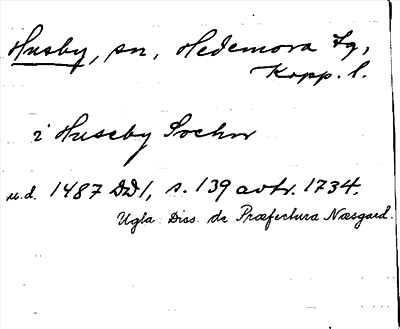 Husby, sn, Hedemora tg,
Kopp. l.
i Huseby Sochn
u.d. 1487 DD1, s. 139 avtr. 1734.
Ugla: Diss. de Præfectura Næsgard.